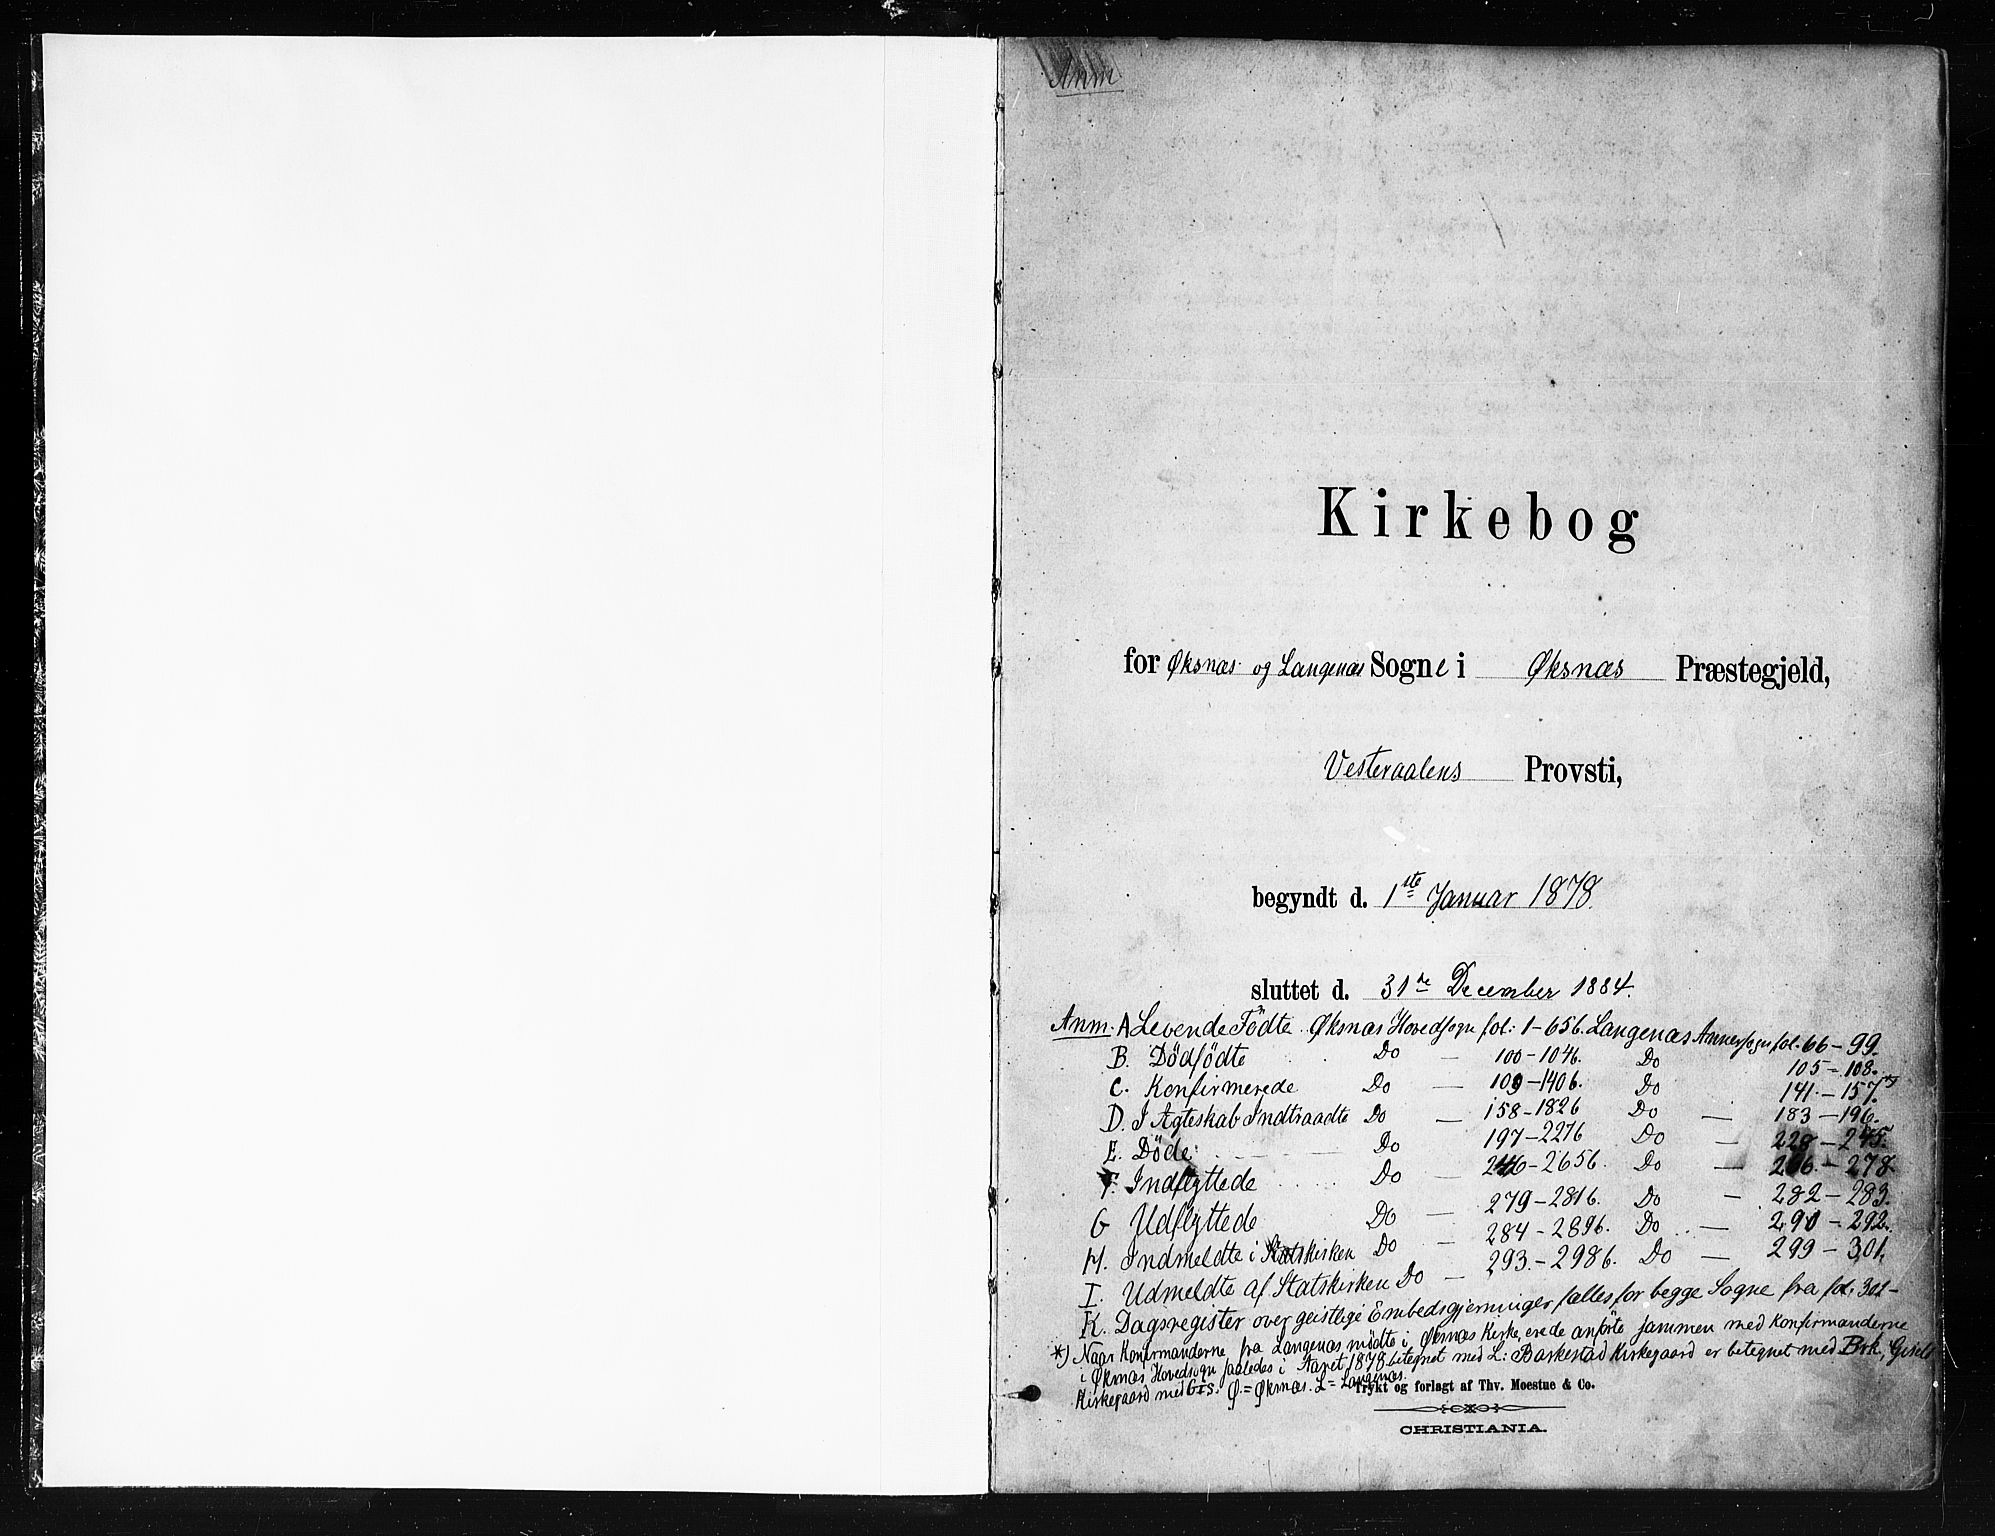 Anm
Kirkebog
for Øksnæs og Langenæs Sogne i Øksnæs Præstegjeld,
Vesteraalens Provsti,
begyndt d. 1ste Januar 1878.
sluttet d. 31te December 1884.
Anm. A Levende Födte Øksnæs Hovedsogn fol: 1-65b. Langenæs Annexsogn fol. 66-99.
B. Dödfödte Do — 100-104b. Do 105-108.
C. Konfirmerede Do — 109-140b. Do 141-157*)
D. I Ægteskab Indtraadte Do — 158-182b Do — 183-196.
E. Döde Do 197-227b Do — 228-245
F. Indflyttede Do — 246-265b. Do — 266-278
G Udflyttede Do — 279-281b. Do — 282-283.
H. Indmeldte i Statskirken Do — 284-289b. Do — 290-292.
I. Udmeldte af Statskirken Do — 293-298b. Do — 299-301.
K. Dagsregister over geistlige Embedsgjerninger fælles for begge Sogne fra fol. 301-
*) Naar Konfirmanderne fra Langenæs mödte i Øksnæs Kirke, ere de anförte sammen med Konfirmanderne
i Øksnæs Hovedsogn saaledes i Aaret 1878 betegnet med L: Barkestad Kirkegaard er betegnet med Brk, Gisels
Kirkegaard med Gis. Ø.=Øksnæs. L=Langenæs.
Trykt og forlagt af Thv. Moestue & Co.
CHRISTIANIA.